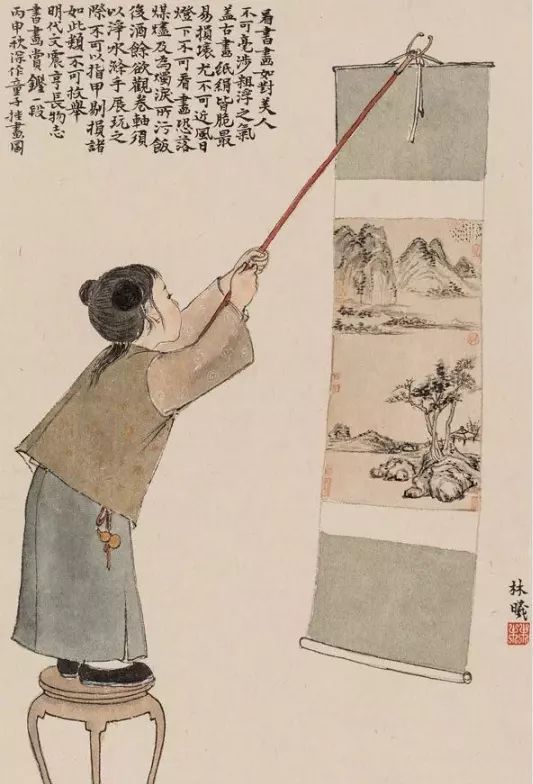 看書畫如對美人
不可毫涉粗浮之氣
蓋古畫紙絹皆脆最
易損壞尤不可近風日
燈下不可看畫恐落
煤燼及為燭淚所污飯
後酒餘欲觀卷軸須
以淨水滌手展玩之
際不可以指甲剔損諸
如此類不可枚舉
明代文震亨長物志
書畫賞鑑一段
丙申秋深作童子挂畫圖
林曦